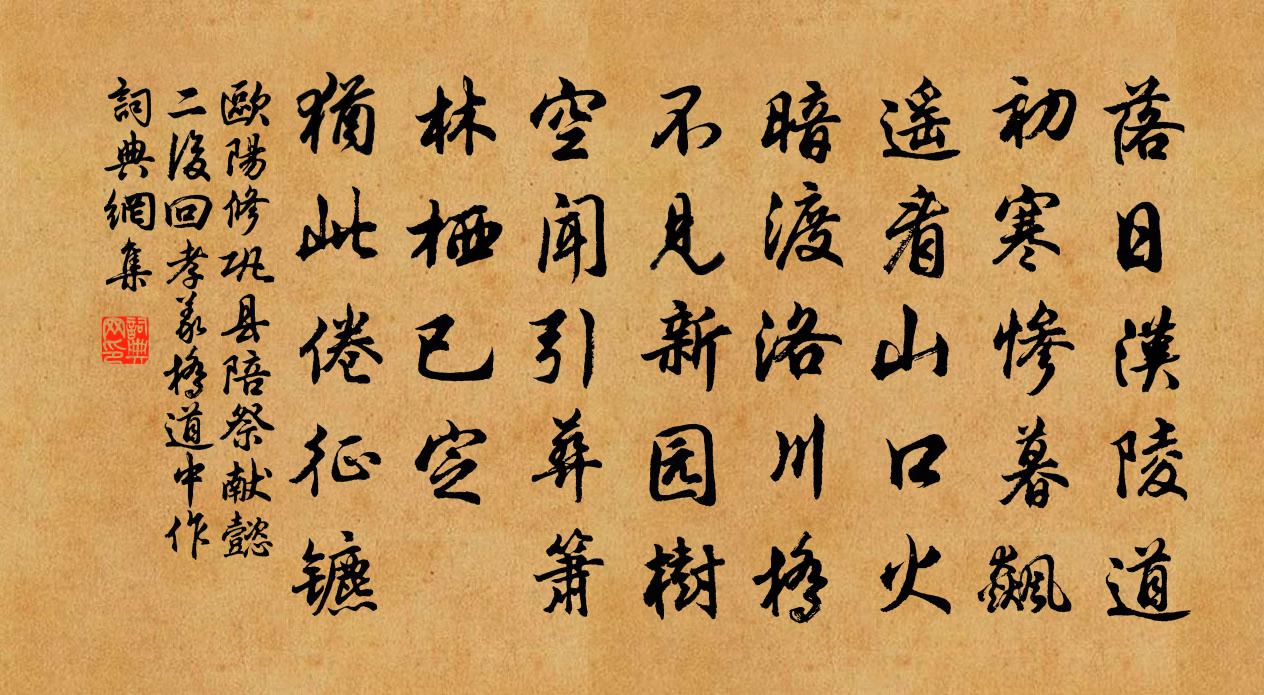 落日漢陵道
初寒慘暮飆
遥看山口火
暗渡洛川橋
不見新园樹
空聞引葬簫
林栖已定
猶此倦征镳
歐陽修巩县陪祭献懿
二後回孝義橋道中作
詞典網集
詞典网印